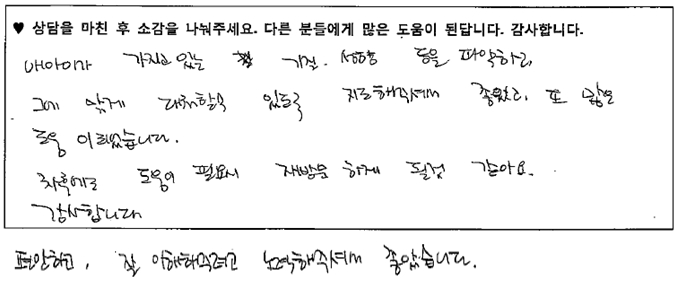 ♥ 상담을 마친 후 소감을 나눠주세요. 다른 분들에게 많은 도움이 된답니다. 감사합니다.
내아이가 가지고 있는 기질. 성향 등을 파악하고,
그에 맞게 대처할수 있도록 지도해주셔서 좋았고, 또 많은
도움이 되었습니다.
차후에도 도움이 필요시 재방문 하게 될것 같아요.
감사합니다
편안하고, 잘 이해해주려고 노력해주셔서 좋았습니다.